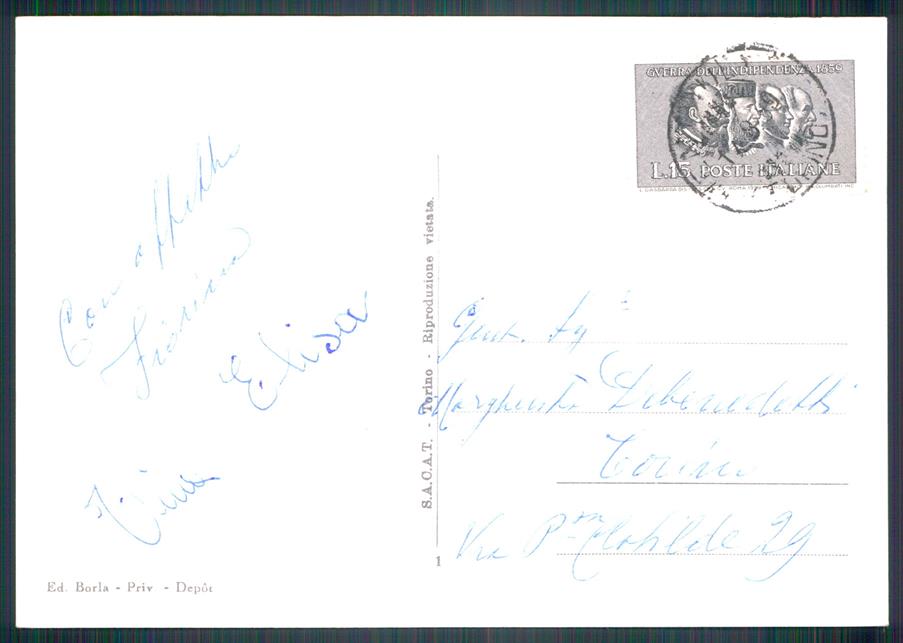 Con affetto
Elisa
Tina
Ed. Borla - Priv - Depôt
S.A.C.A.T. - Torino - Riproduzione vietata.
1
GVERRA DELL'INDIPENDENZA 1859
L.15 POSTE ITALIANE
Gent. Sig
Margherita Debenedetti
Torino
Via Pssa Clotilde 29